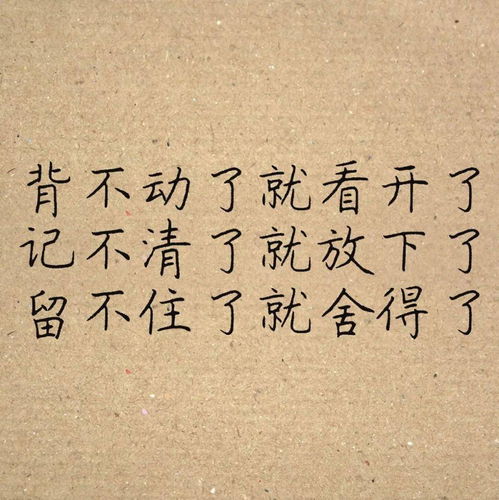 背不动了就看开了
记不清了就放下了
留不住了就舍得了